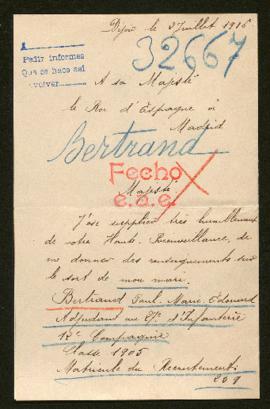 Dijon le 2 Juillet 1916
32667
Pedir informes
Que se hace así
volver
A sa Majesté
le Roi d'Espagne à
Madrid
Bertrand
Fecho
e.a.e.
Majesté
J'ose supplier très humblement
de votre Haute Bienveillance, de
me donner des renseignements sur
le sort de mon mari.
Bertrand Paul Marie Edouard
Adjudant au d'Infanterie
12e Compagnie
Classe 1905
Matricule du Recrutement
209